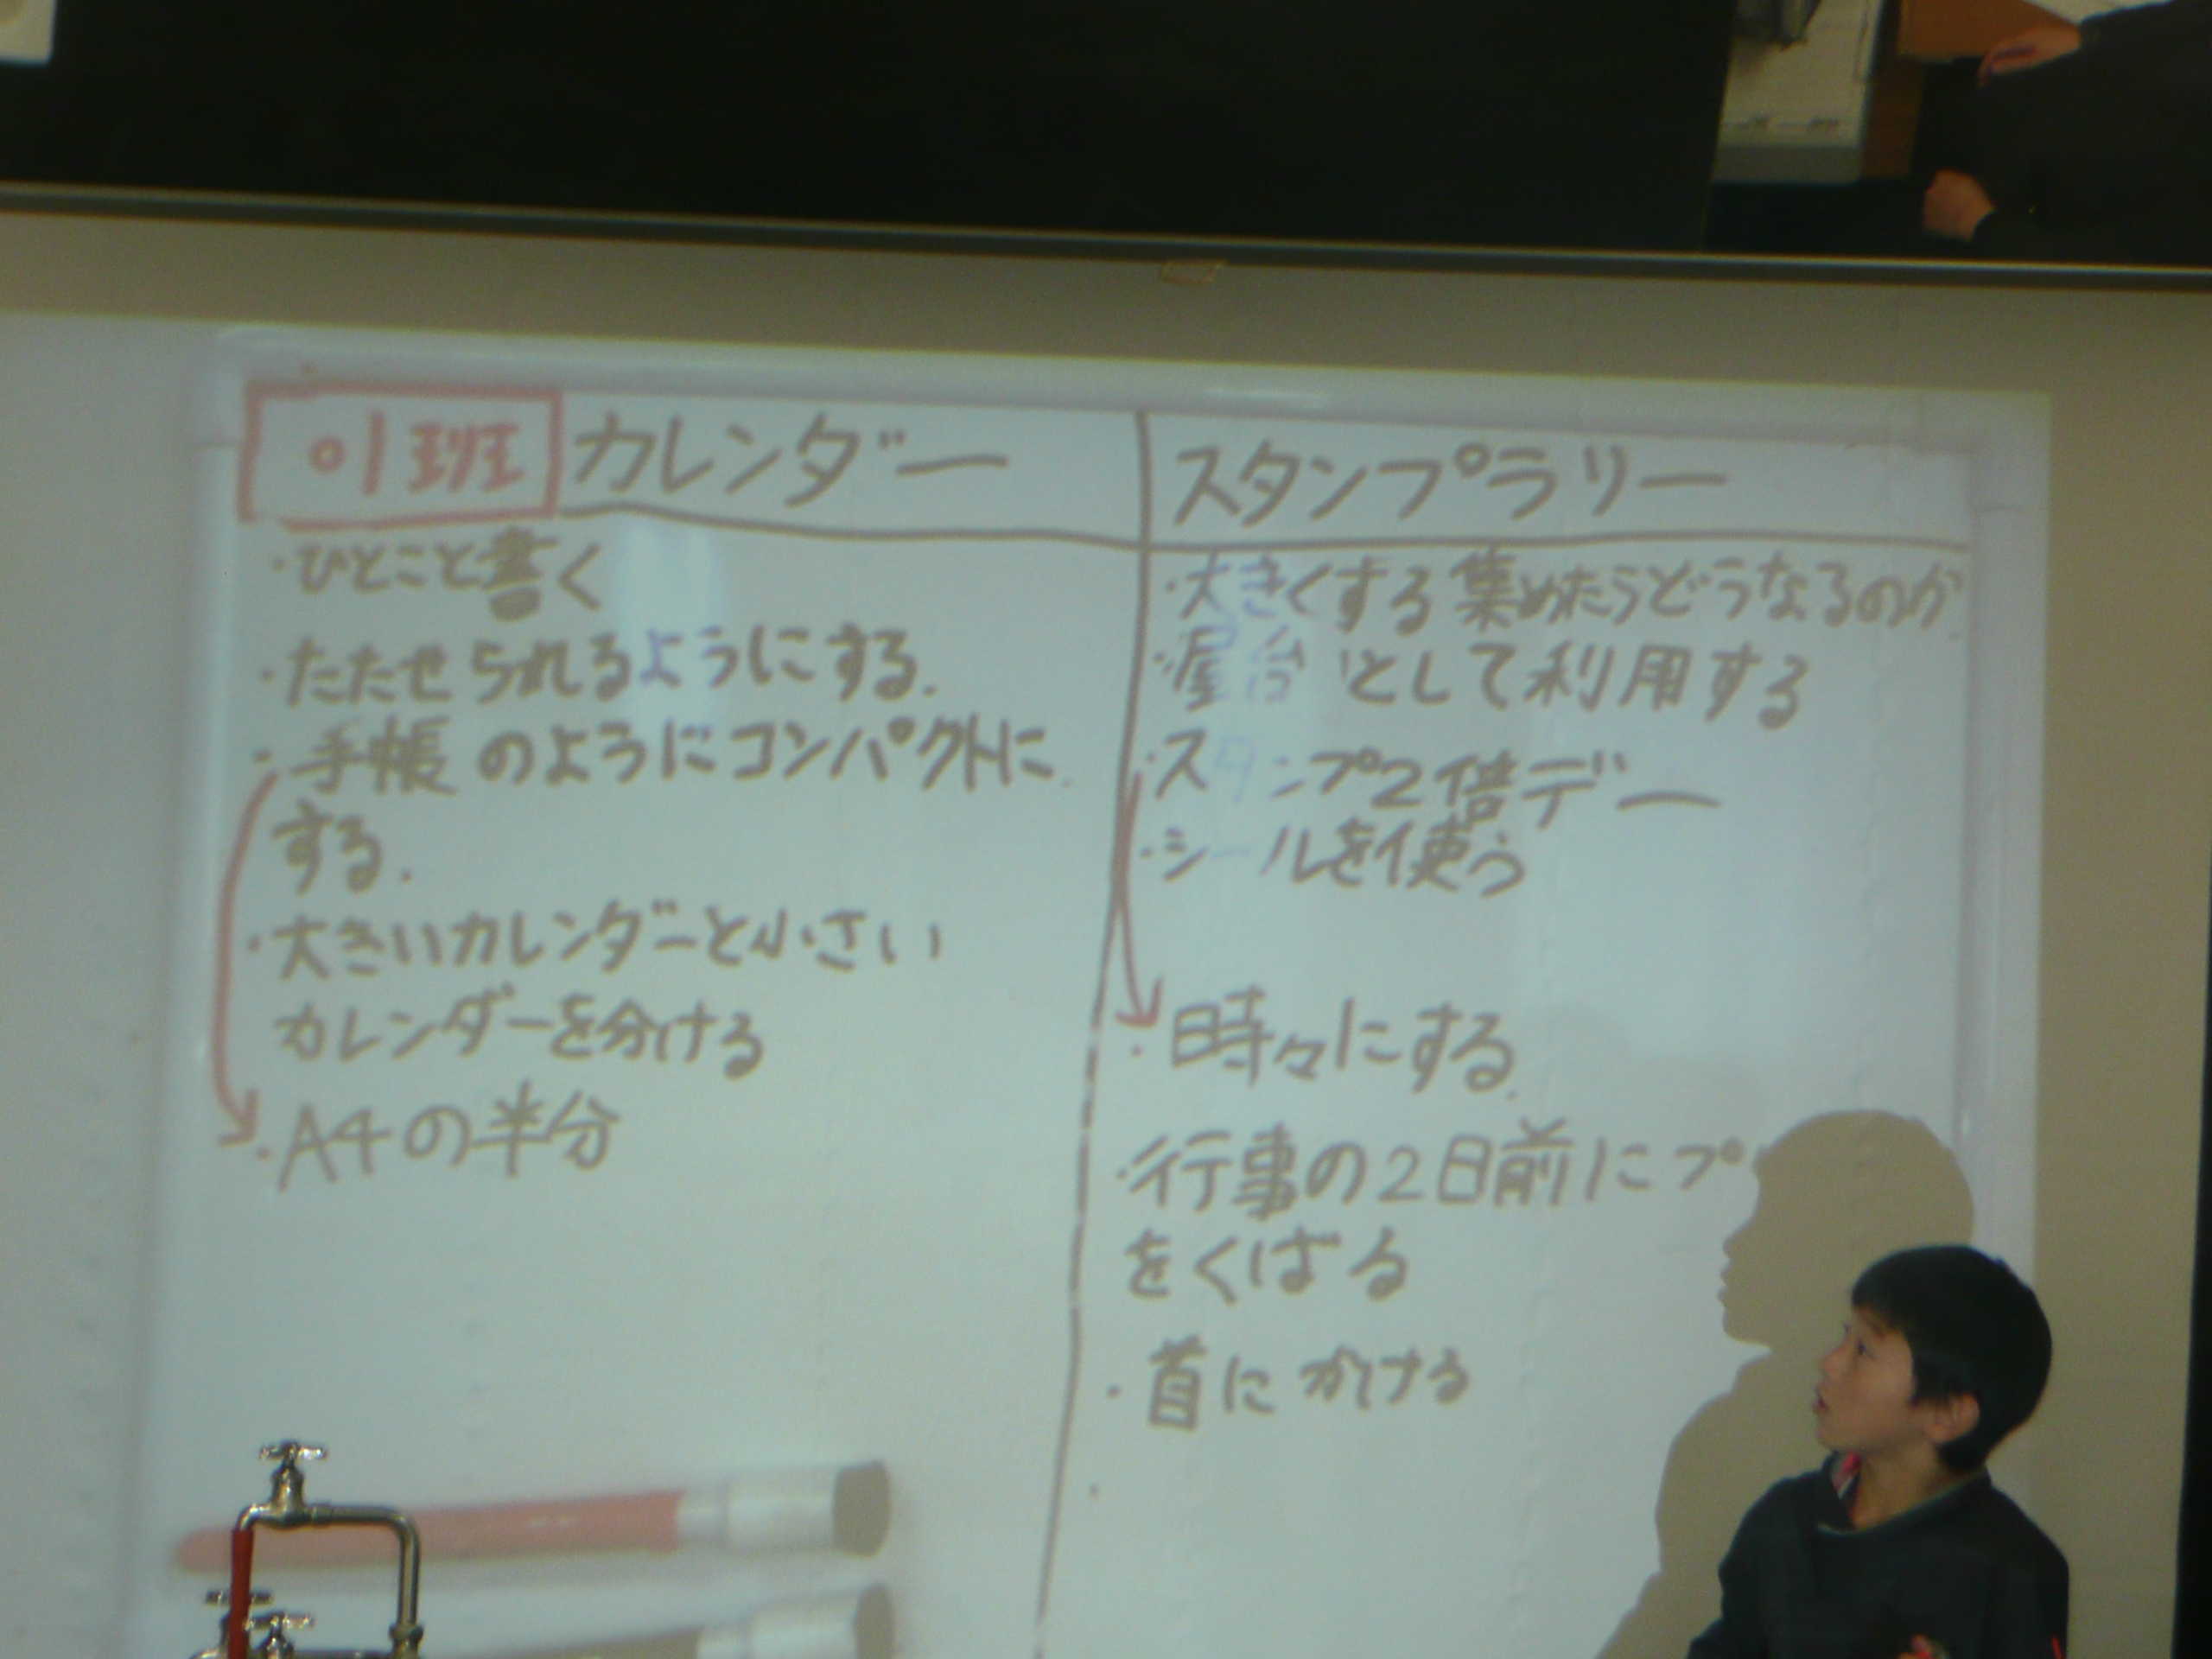 01班 カレンダー
・ひとこと書く
・たたせられるようにする.
・手帳のようにコンパクトに
する.
・大きいカレンダーと小さい
カレンダーを分ける
・A4の半分
スタンプラリー
・大きくする 集めたらどうなるのか
・屋台として利用する
・スタンプ2倍デー
・シールを使う
・時々にする.
・行事の2日前にプ
をくばる
・首にかける